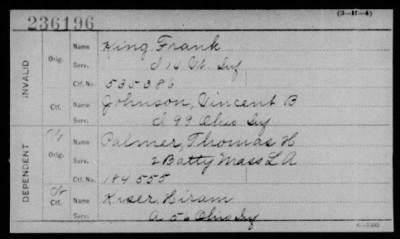 (3-H-4)
236196
INVALID
Orig.
Name King Frank
Serv. I 16 Vt. Inf
Ctf. No. 535386
Ctf.
Name Johnson, Vincent B
Serv. I 99 Ohio Inf
DEPENDENT
Orig.
Name Palmer, Thomas H
Serv. 2 Batty Mass L A
Ctf. No. 184555
Ctf.
Name Kiser Hiram
Serv. A 56 Ohio Inf